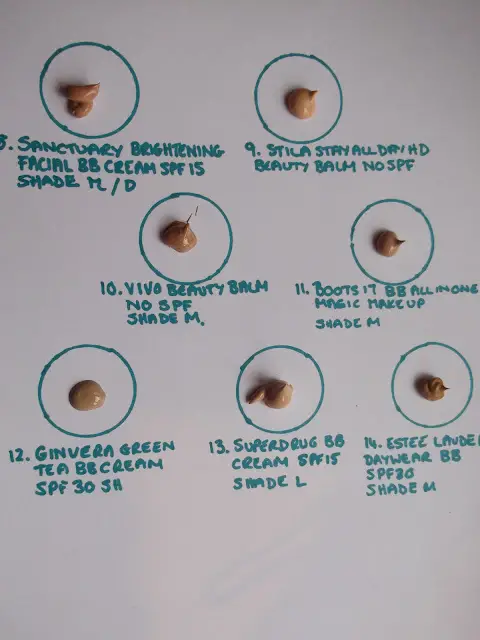 8. SANCTUARY BRIGHTENING
FACIAL BB CREAM SPF 15
SHADE M/D
9. STILA STAY ALL DAY HD
BEAUTY BALM NO SPF
10. VIVO BEAUTY BALM
NO SPF
SHADE M.
11. BOOTS 17 BB ALL IN ONE
MAGIC MAKEUP
SHADE M
12. GINVERA GREEN
TEA BB CREAM
SPF 30 SH
13. SUPERDRUG BB
CREAM SPF15
SHADE L
14. ESTEE LAUDE
DAYWEAR BB
SPF30
SHADE M